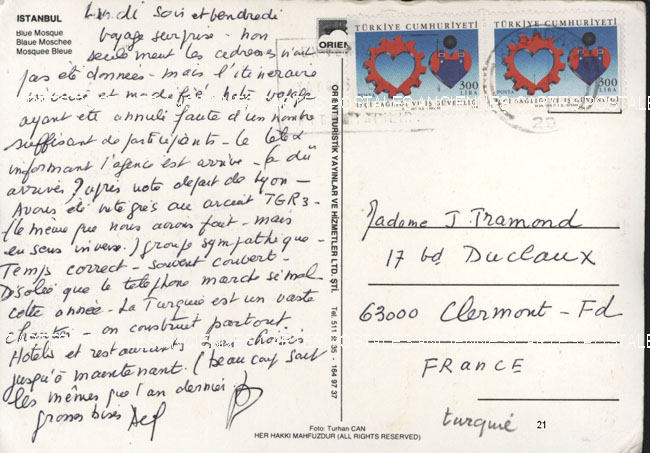 ISTANBUL
Blue Mosque
Blaue Moschee
Mosquee Bleue
Lundi soir et vendredi
voyage surprise - non
seulement les adresses n'ont
pas été données - mais l'itineraire
et modifié. Notre voyage
ayant été annulé faute d'un nombre
suffisant de participants - le télex
informant l'agence est arrivé - (a dû
arriver) après notre départ de Lyon -
Avons été intégrés au circuit TGR3 -
(le même que nous avons fait - mais
en sens inverse.) groupe sympathique -
Temps correct - souvent couvert -
Désolée que le téléphone marche si mal
cette année - La Turquie est un vaste
chantier - on construit partout
Hotels et restaurants choisis
jusqu'à maintenant. (beaucoup sont
les mêmes que l'an dernier)
grosses bises
ORIENT
ORIENT TURİSTİK YAYINLAR VE HİZMETLER LTD. ŞTİ. Tel. 511 21 35 - 164 97 37
TÜRKİYE CUMHURİYETİ
POSTA
300
LİRA
İŞÇİ SAĞLIĞI VE İŞ GÜVENLİĞİ
TÜRKİYE CUMHURİYETİ
POSTA
300
LİRA
İŞÇİ SAĞLIĞI VE İŞ GÜVENLİĞİ
23
Madame J. Tramond
17 bd Duclaux
63000 Clermont-Fd
FRANCE
turquié
21
Foto: Turhan CAN
HER HAKKI MAHFUZDUR (ALL RIGHTS RESERVED)